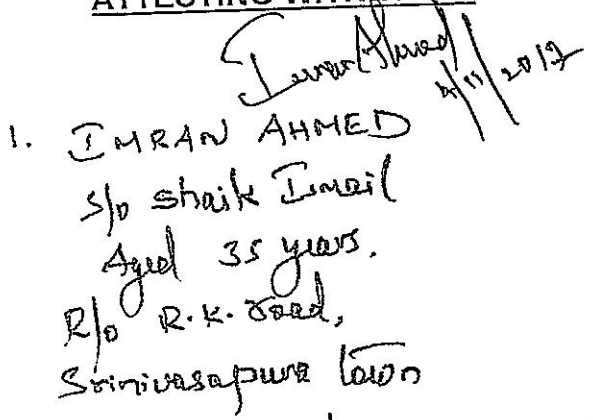 ATTESTING WITN
Imran Ahmed
4/11/2017
1. IMRAN AHMED
S/o Shaik Ismail
Aged 35 years.
R/o R.K. Road,
Srinivasapura Town